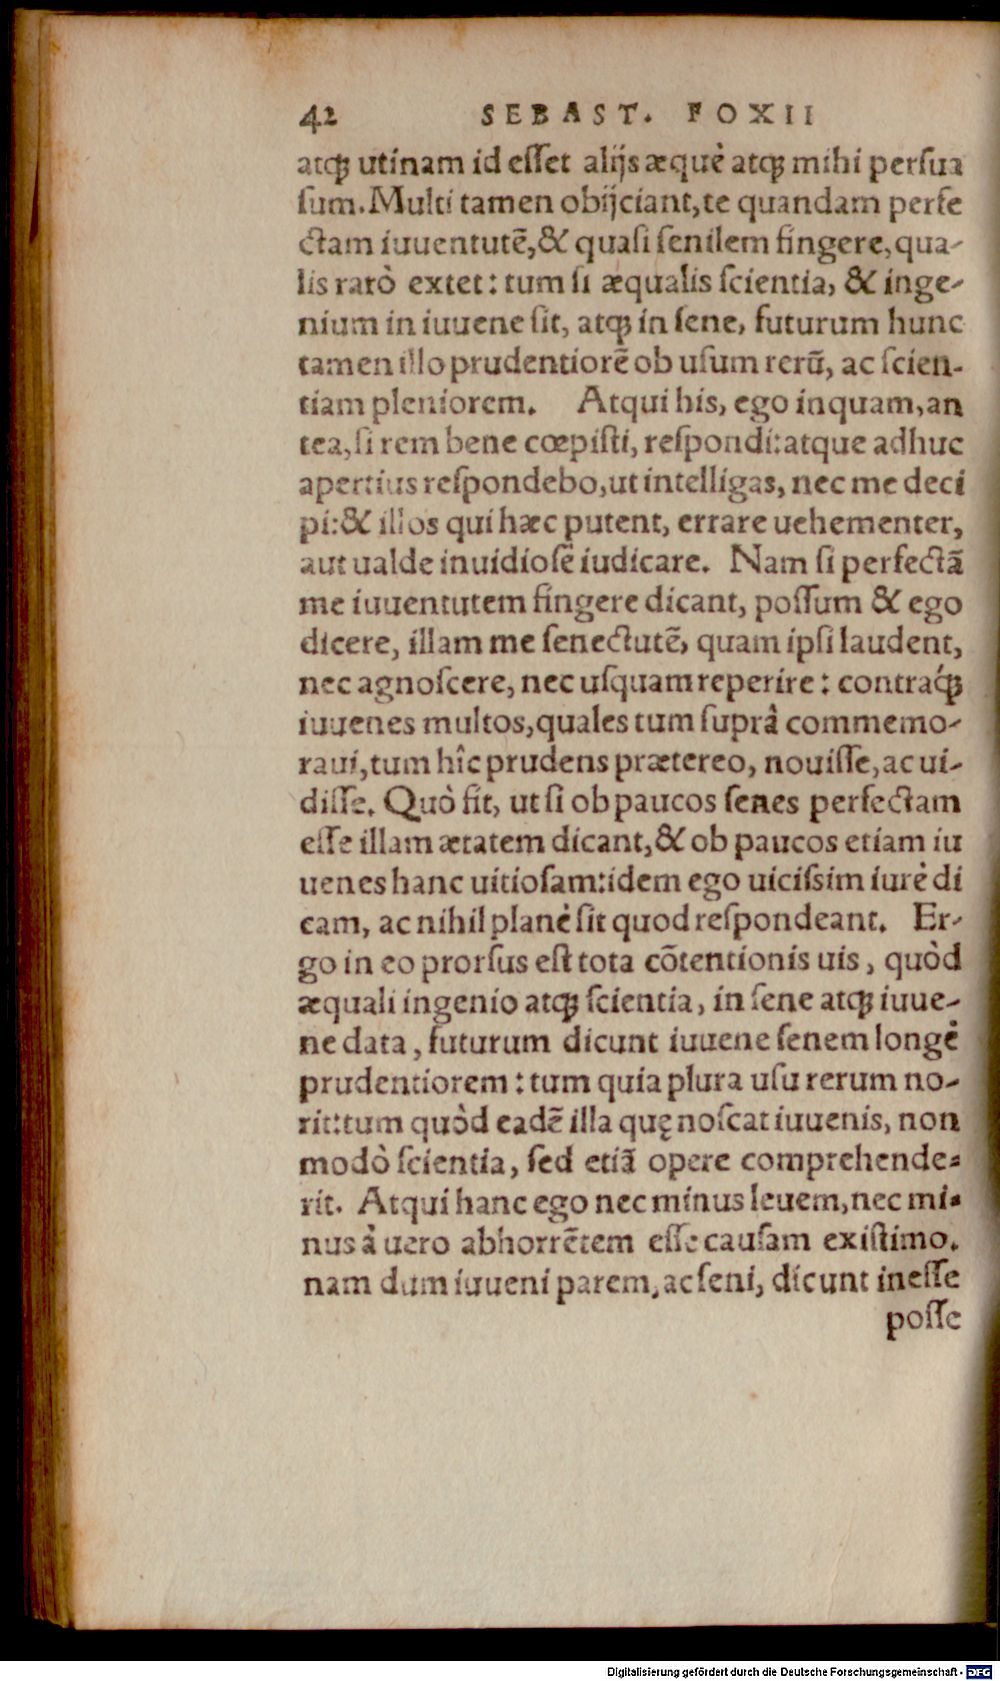 42 SEBAST. FOXII
atqꝫ utinam id eſſet alijs æquè atqꝫ mihi perſua
ſum. Multi tamen obijciant, te quandam perfe
ctam iuuentutē, & quaſi ſenilem fingere, qua-
lis rarò extet: tum ſi æqualis ſcientia, & inge-
nium in iuuene ſit, atqꝫ in ſene, futurum hunc
tamen illo prudentiorē ob uſum rerū, ac ſcien-
tiam pleniorem. Atqui his, ego inquam, an
tea, ſi rem bene cœpiſti, reſpondi: atque adhuc
apertius reſpondebo, ut intelligas, nec me deci
pi: & illos qui hæc putent, errare uehementer,
aut ualde inuidioſè iudicare. Nam ſi perfectā
me iuuentutem fingere dicant, poſſum & ego
dicere, illam me ſenectutē, quam ipſi laudent,
nec agnoſcere, nec uſquam reperire: contraq́ꝫ
iuuenes multos, quales tum ſuprà commemo-
raui, tum hîc prudens prætereo, nouiſſe, ac ui-
diſſe. Quò fit, ut ſi ob paucos ſenes perfectam
eſſe illam ætatem dicant, & ob paucos etiam iu
uenes hanc uitioſam: idem ego uiciſsim iurè di
cam, ac nihil planè ſit quod reſpondeant. Er-
go in eo prorſus eſt tota cōtentionis uis, quòd
æquali ingenio atqꝫ ſcientia, in ſene atqꝫ iuue-
ne data, futurum dicunt iuuene ſenem longè
prudentiorem: tum quia plura uſu rerum no-
rit: tum quòd eadē illa quę noſcat iuuenis, non
modò ſcientia, ſed etiā opere comprehende-
rit. Atqui hanc ego nec minus leuem, nec mi-
nus à uero abhorrētem eſſe cauſam exiſtimo.
nam dum iuueni parem, ac ſeni, dicunt ineſſe
poſſe
Digitalisierung gefördert durch die Deutsche Forschungsgemeinschaft - DFG